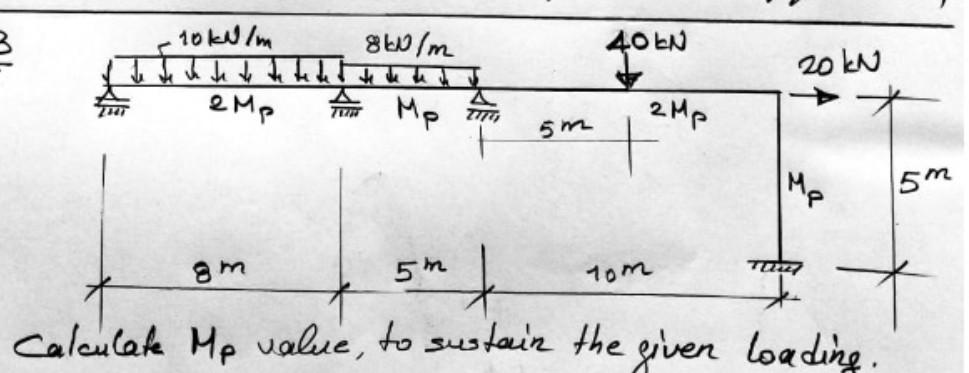 3
10 kN/m 8 kN/m 40 kN 20 kN
2Mp Mp 5m 2Mp
Mp 5m
8m 5m 10m
Calculate Mp value, to sustain the given loading.